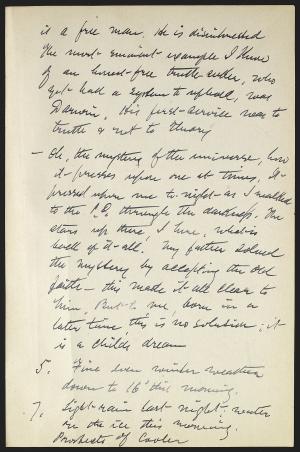 is a free man. He is disinterested
The most eminent example I know
of an honest-free truth-seeker, who
yet had a system to uphold, was
Darwin. His first service was to
truth & not to theory
— Oh, the mystery of the universe, how
it presses upon one at times. It
pressed upon me to-night as I walked
to the P.O. through the darkness. The
stars up there, I here, what is
back of it all. My father solved
the mystery by accepting the old
faith — this made it all clear to
him. But to me, born in a
later time, this is no solution; it
is a childs dream
5. Fine even winter weather
down to 16° this morning.
7. Light rain last night; water
on the ice this morning.
Prospects of Cooler